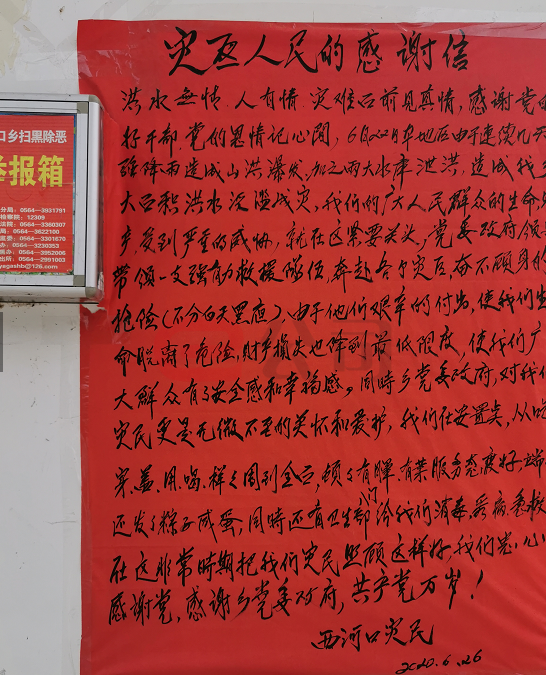 灾区人民的感谢信
洪水无情、人有情、灾难面前见真情,感谢党的
好干部、党的恩情记心间,6月22日本地区由于连续几天
强降雨造成山洪瀑发、加之两大水库泄洪,造成我乡
大面积洪水泛滥成灾,我们的广大人民群众的生命
受到严重的威协,就在这紧要关头,党委政府领
带领一支强有力救援队伍,奔赴各个灾区,奋不顾身的
抢险(不分白天黑夜)、由于他们艰辛的付出,使我们生
命脱离了危险,财产损失也降到最低限度,使我们广
大群众有了安全感和幸福感。同时乡党委政府,对我们
灾民更是无微不至的关怀和爱护,我们在安置点,从吃
穿、盖、用、喝、样々周到全面,顿々有晕、有菜服务态度好、端
还发了粽子咸蛋,同时还有卫生部门给我们消毒、看病、
在这非常时期把我们灾民照顾这样好,我们衷心
感谢党,感谢乡党委政府,共产党万岁!
西河口灾民
2020.6.26
口乡扫黑除恶
举报箱
分局:0564-3931791
检察院:12309
法院:0564-3360307
局:0564-3622100
监委:0564-3301670
办:0564-3230353
办:0564-3952006
出所:0564-2991003
ywpzshb@126.com